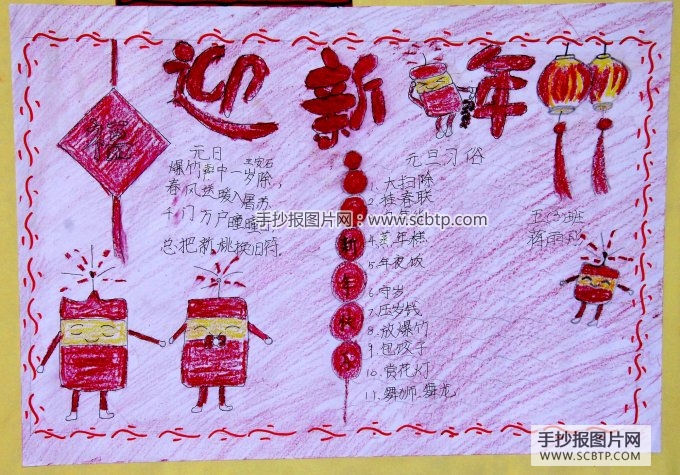 迎新年
福
元日
王安石
爆竹声中一岁除,
春风送暖入屠苏
千门万户曈曈
总把新桃换旧符.
新
年
元旦习俗
1. 大扫除
2. 挂春联
4. 蒸年糕
5. 年夜饭
6. 守岁
7. 压岁钱
8. 放爆竹
9. 包饺子
10. 赏花灯
11. 舞狮.舞龙
蒋雨
手抄报图片网：www.scbtp.com
手抄报图片网
WWW.SCBTP.COM